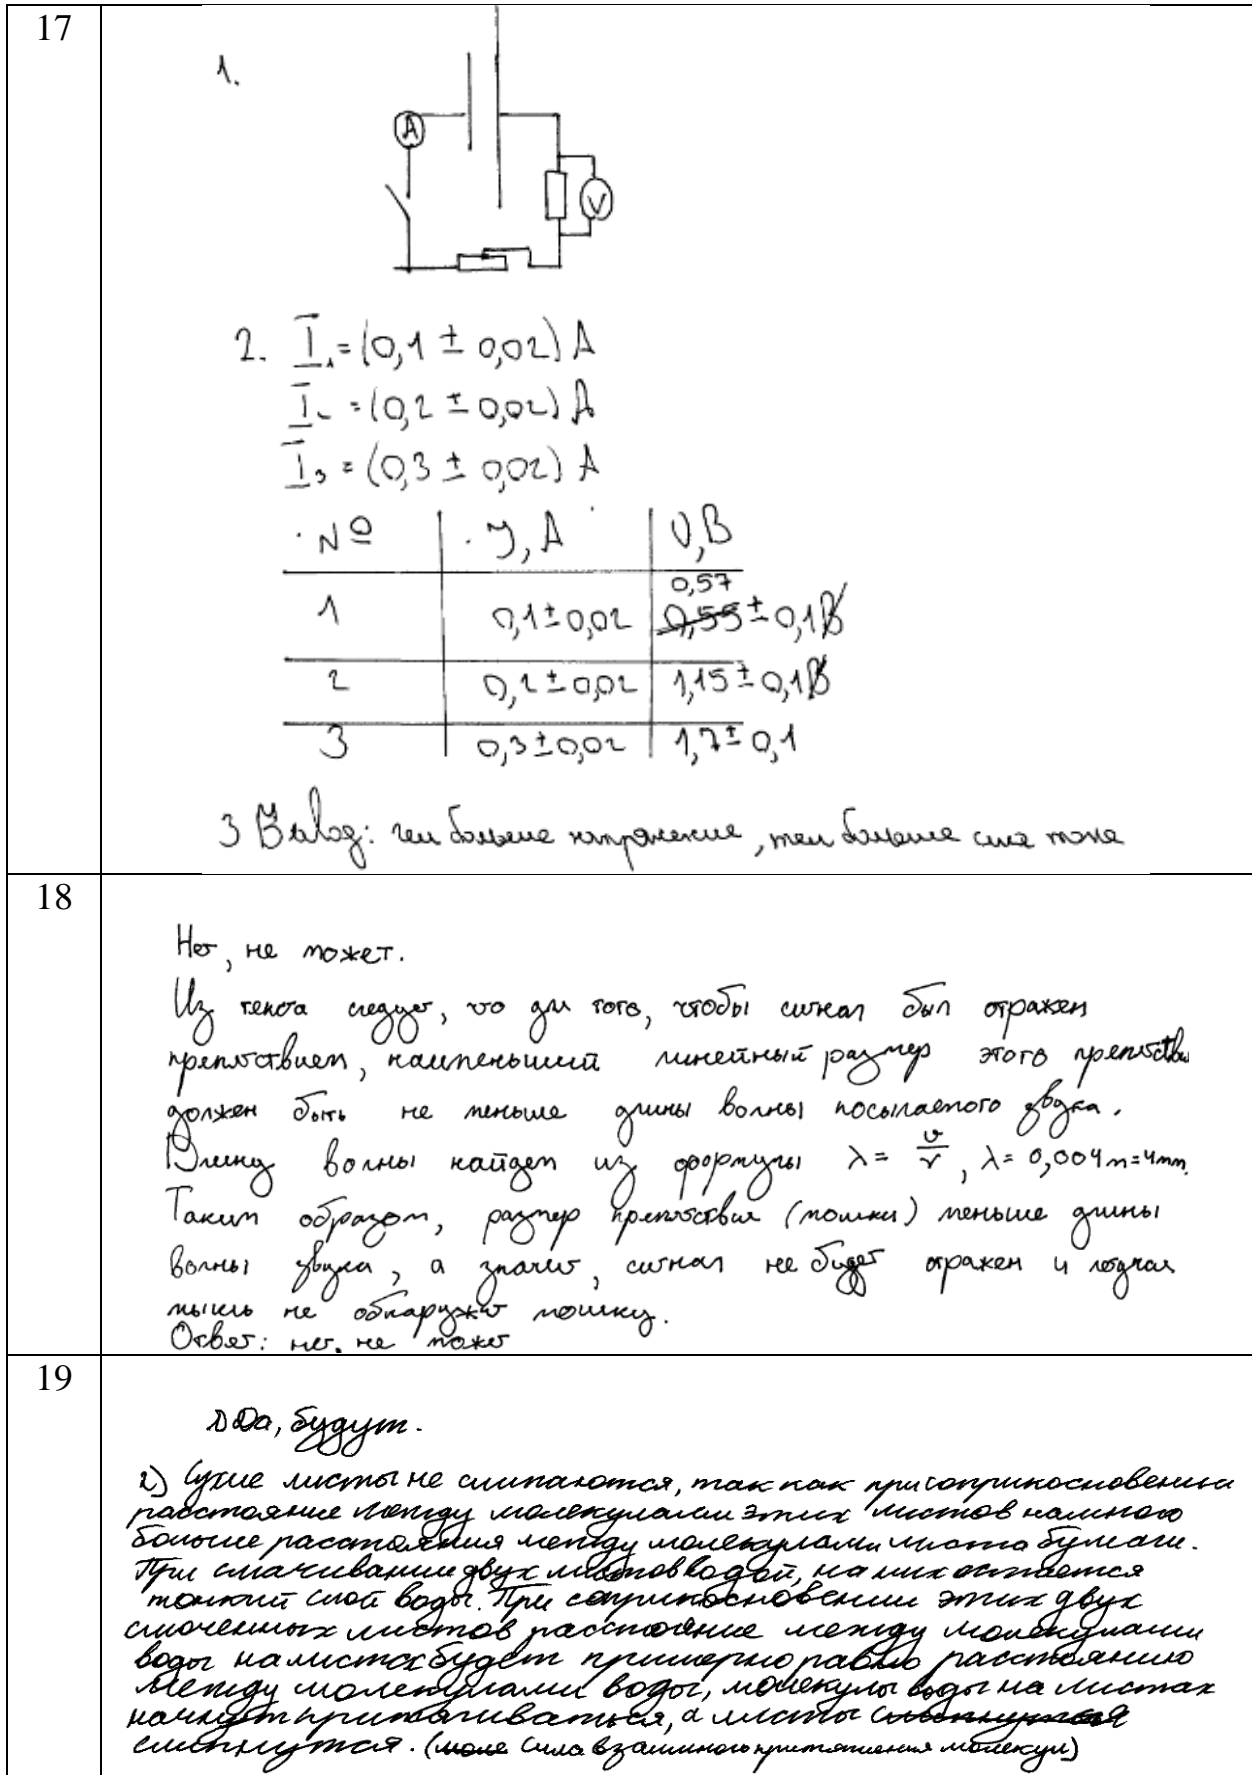 17
1.
A
V
2. I₁ = (0,1 ± 0,02) A
I₂ = (0,2 ± 0,02) A
I₃ = (0,3 ± 0,02) A
№ I, A U, B
0,57
1 0,1 ± 0,02 0,55 ± 0,1 B
2 0,2 ± 0,02 1,15 ± 0,1 B
3 0,3 ± 0,02 1,7 ± 0,1
3 Вывод: чем больше напряжение, тем больше сила тока
18
Нет, не может.
Из текста следует, что для того, чтобы сигнал был отражен
препятствием, наименьший линейный размер этого препятствия
должен быть не меньше длины волны посылаемого звука.
Длину волны найдем из формулы λ = v/ν, λ = 0,004 м = 4 мм.
Таким образом, размер препятствия (мошки) меньше длины
волны звука, а значит, сигнал не будет отражен и летучая
мышь не обнаружит мошку.
Ответ: нет, не может
19
1) Да, будут.
2) Сухие листы не слипаются, так как при соприкосновении
расстояние между молекулами этих листов намного
больше расстояния между молекулами листа бумаги.
При смачивании двух листов водой, на них остается
тонкий слой воды. При соприкосновении этих двух
смоченных листов расстояние между молекулами
воды на листах будет примерно равно расстоянию
между молекулами воды, молекулы воды на листах
начнут притягиваться, а листы
слипнутся. (моле Сила взаимного притяжения молекул)